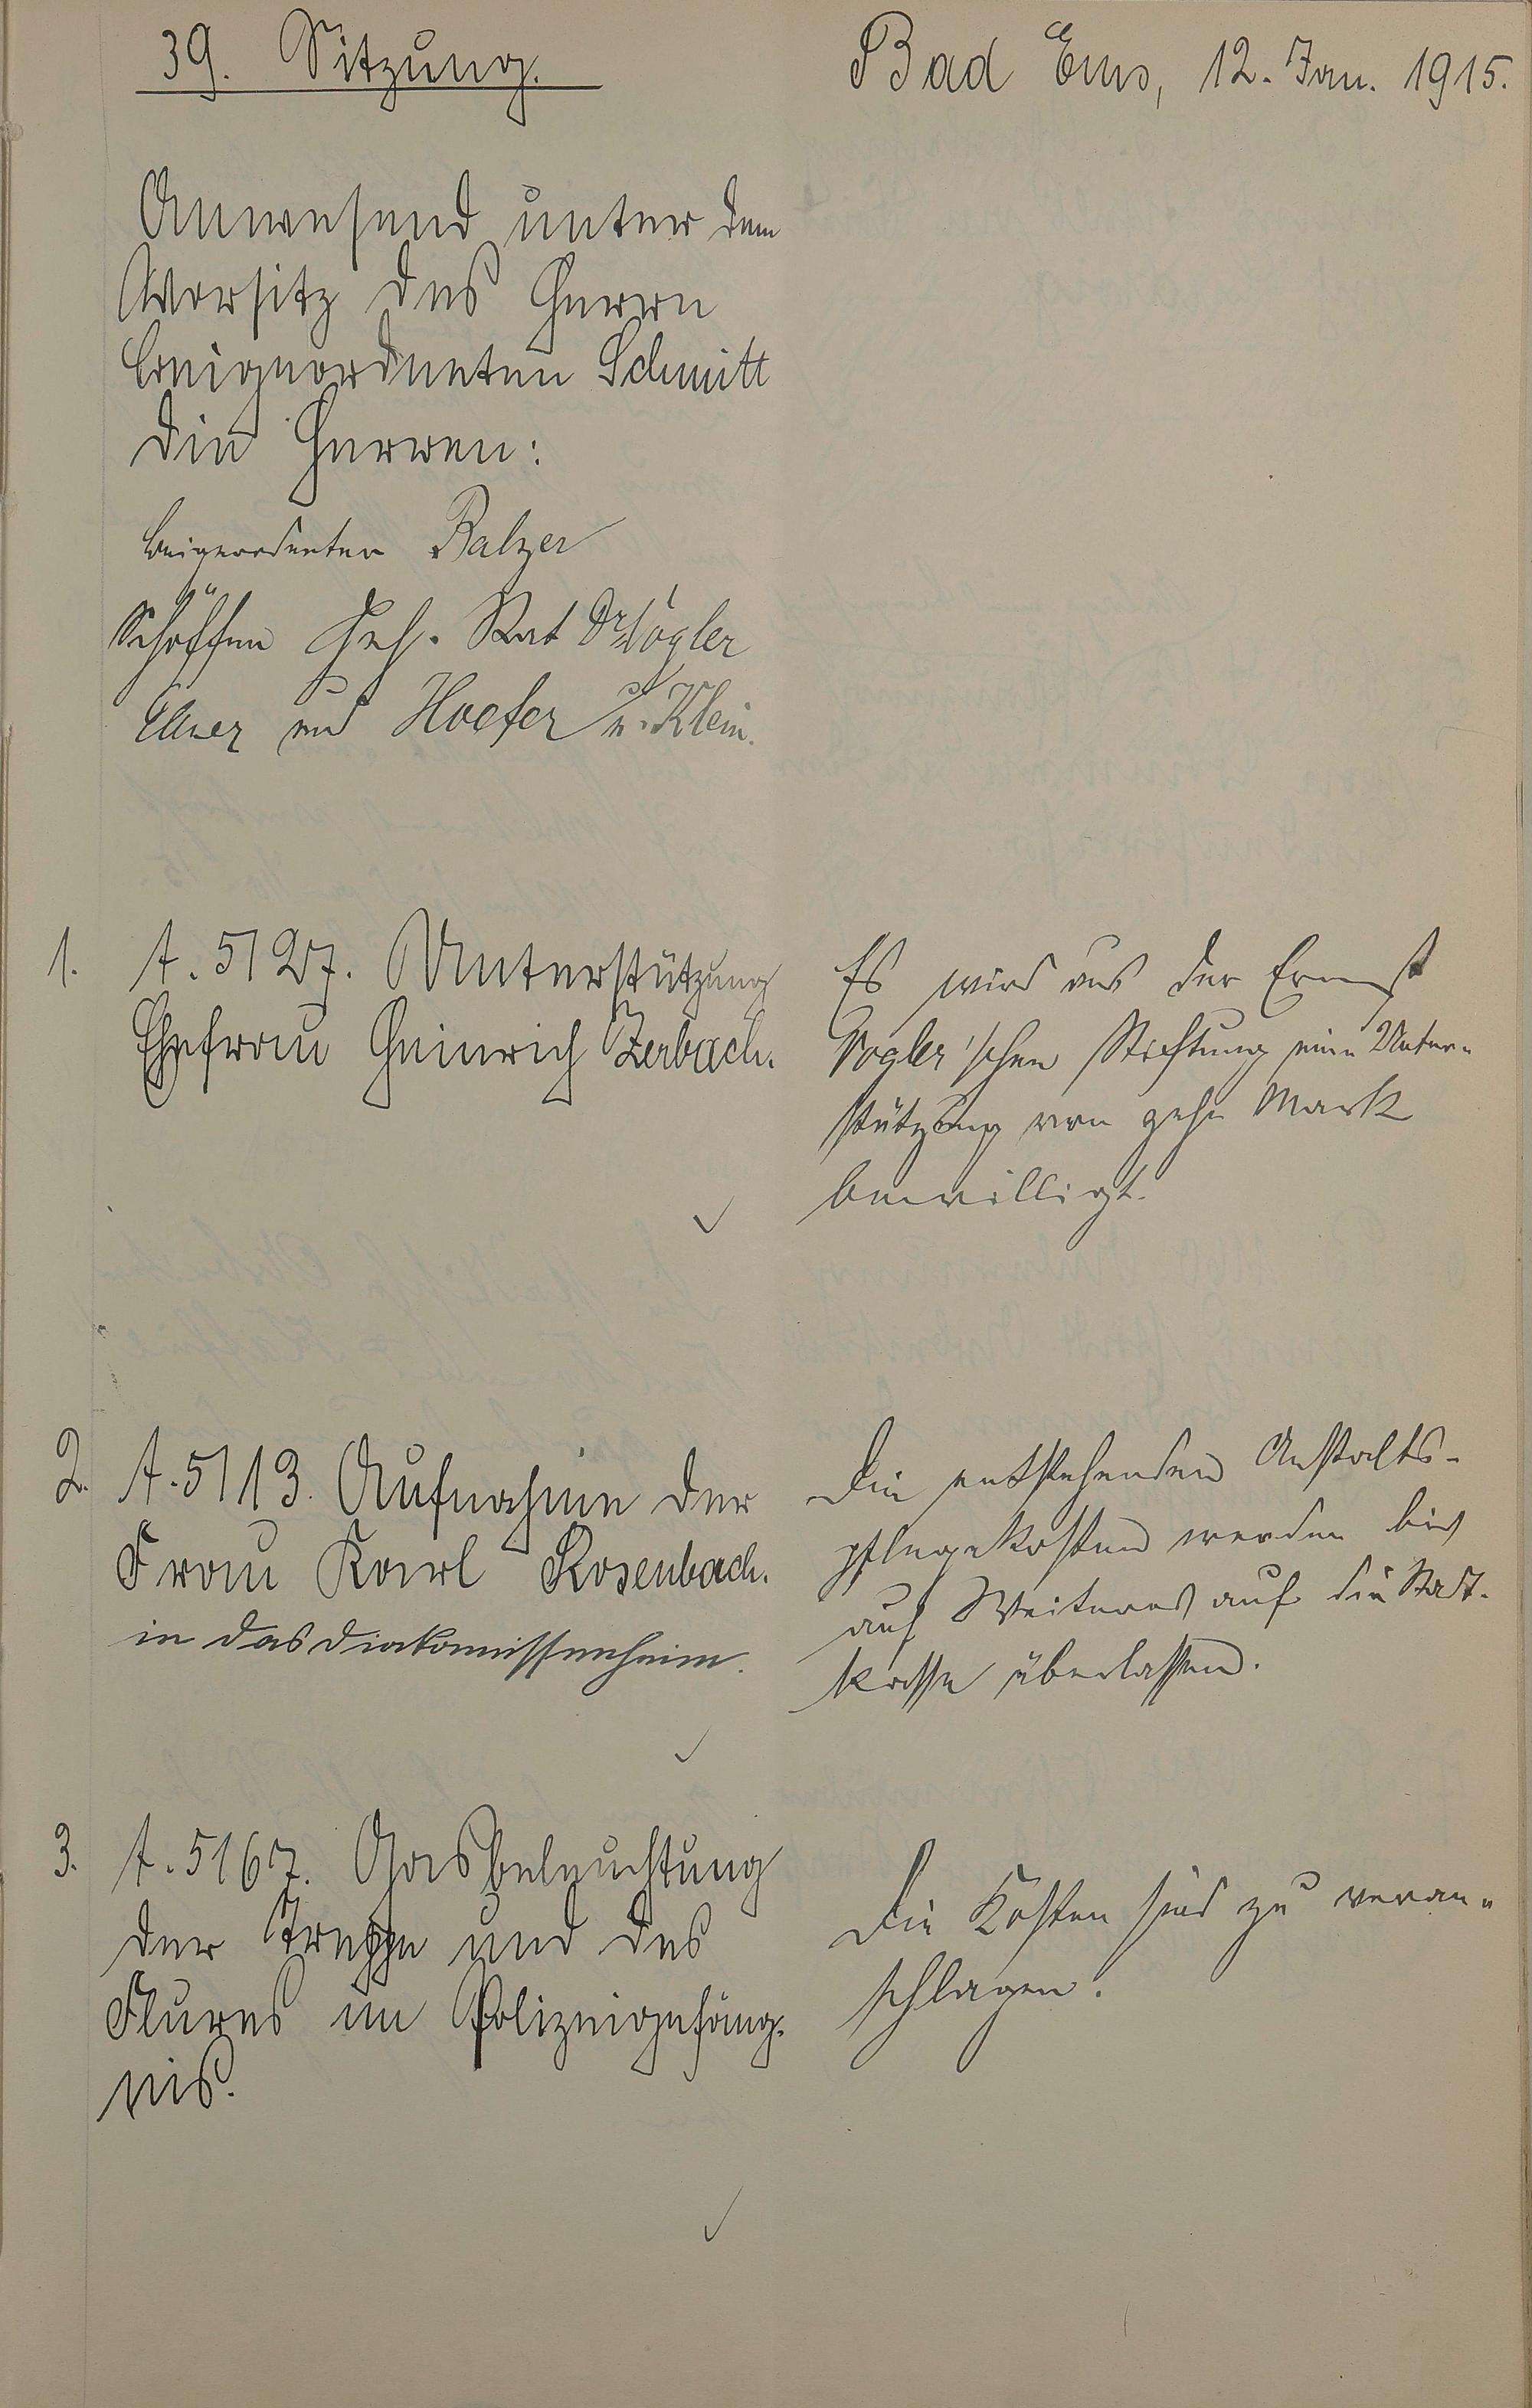 39. Sitzung.
Bad Ems, 12. Jan. 1915.
Anwesend unter dem
Vorsitz des Herrn
Beigeordneten Schmitt
die Herren:
Beigeordneter Balzer
Schöffen Geh. Rat Dr Vogler
und Hoefer u. Klein.
1. A. 5127. Unterstützung
Ehefrau Heinrich Zerbach.
Es wird aus der Ernst
Vogler'schen Stiftung eine Unter-
stützung von zehn Mark
bewilligt.
2. A. 5113. Aufnahme der
Frau Karl Rosenbach.
in das Diakonissenheim.
Die entstehenden Anstalts-
pflegekosten werden bis
auf Weiteres auf die Stadt-
kasse überlassen.
3. A. 5167. Gasbeleuchtung
der Treppe und des
Flures im Polizeigefäng-
nis.
Die Kosten sind zu veran-
schlagen.